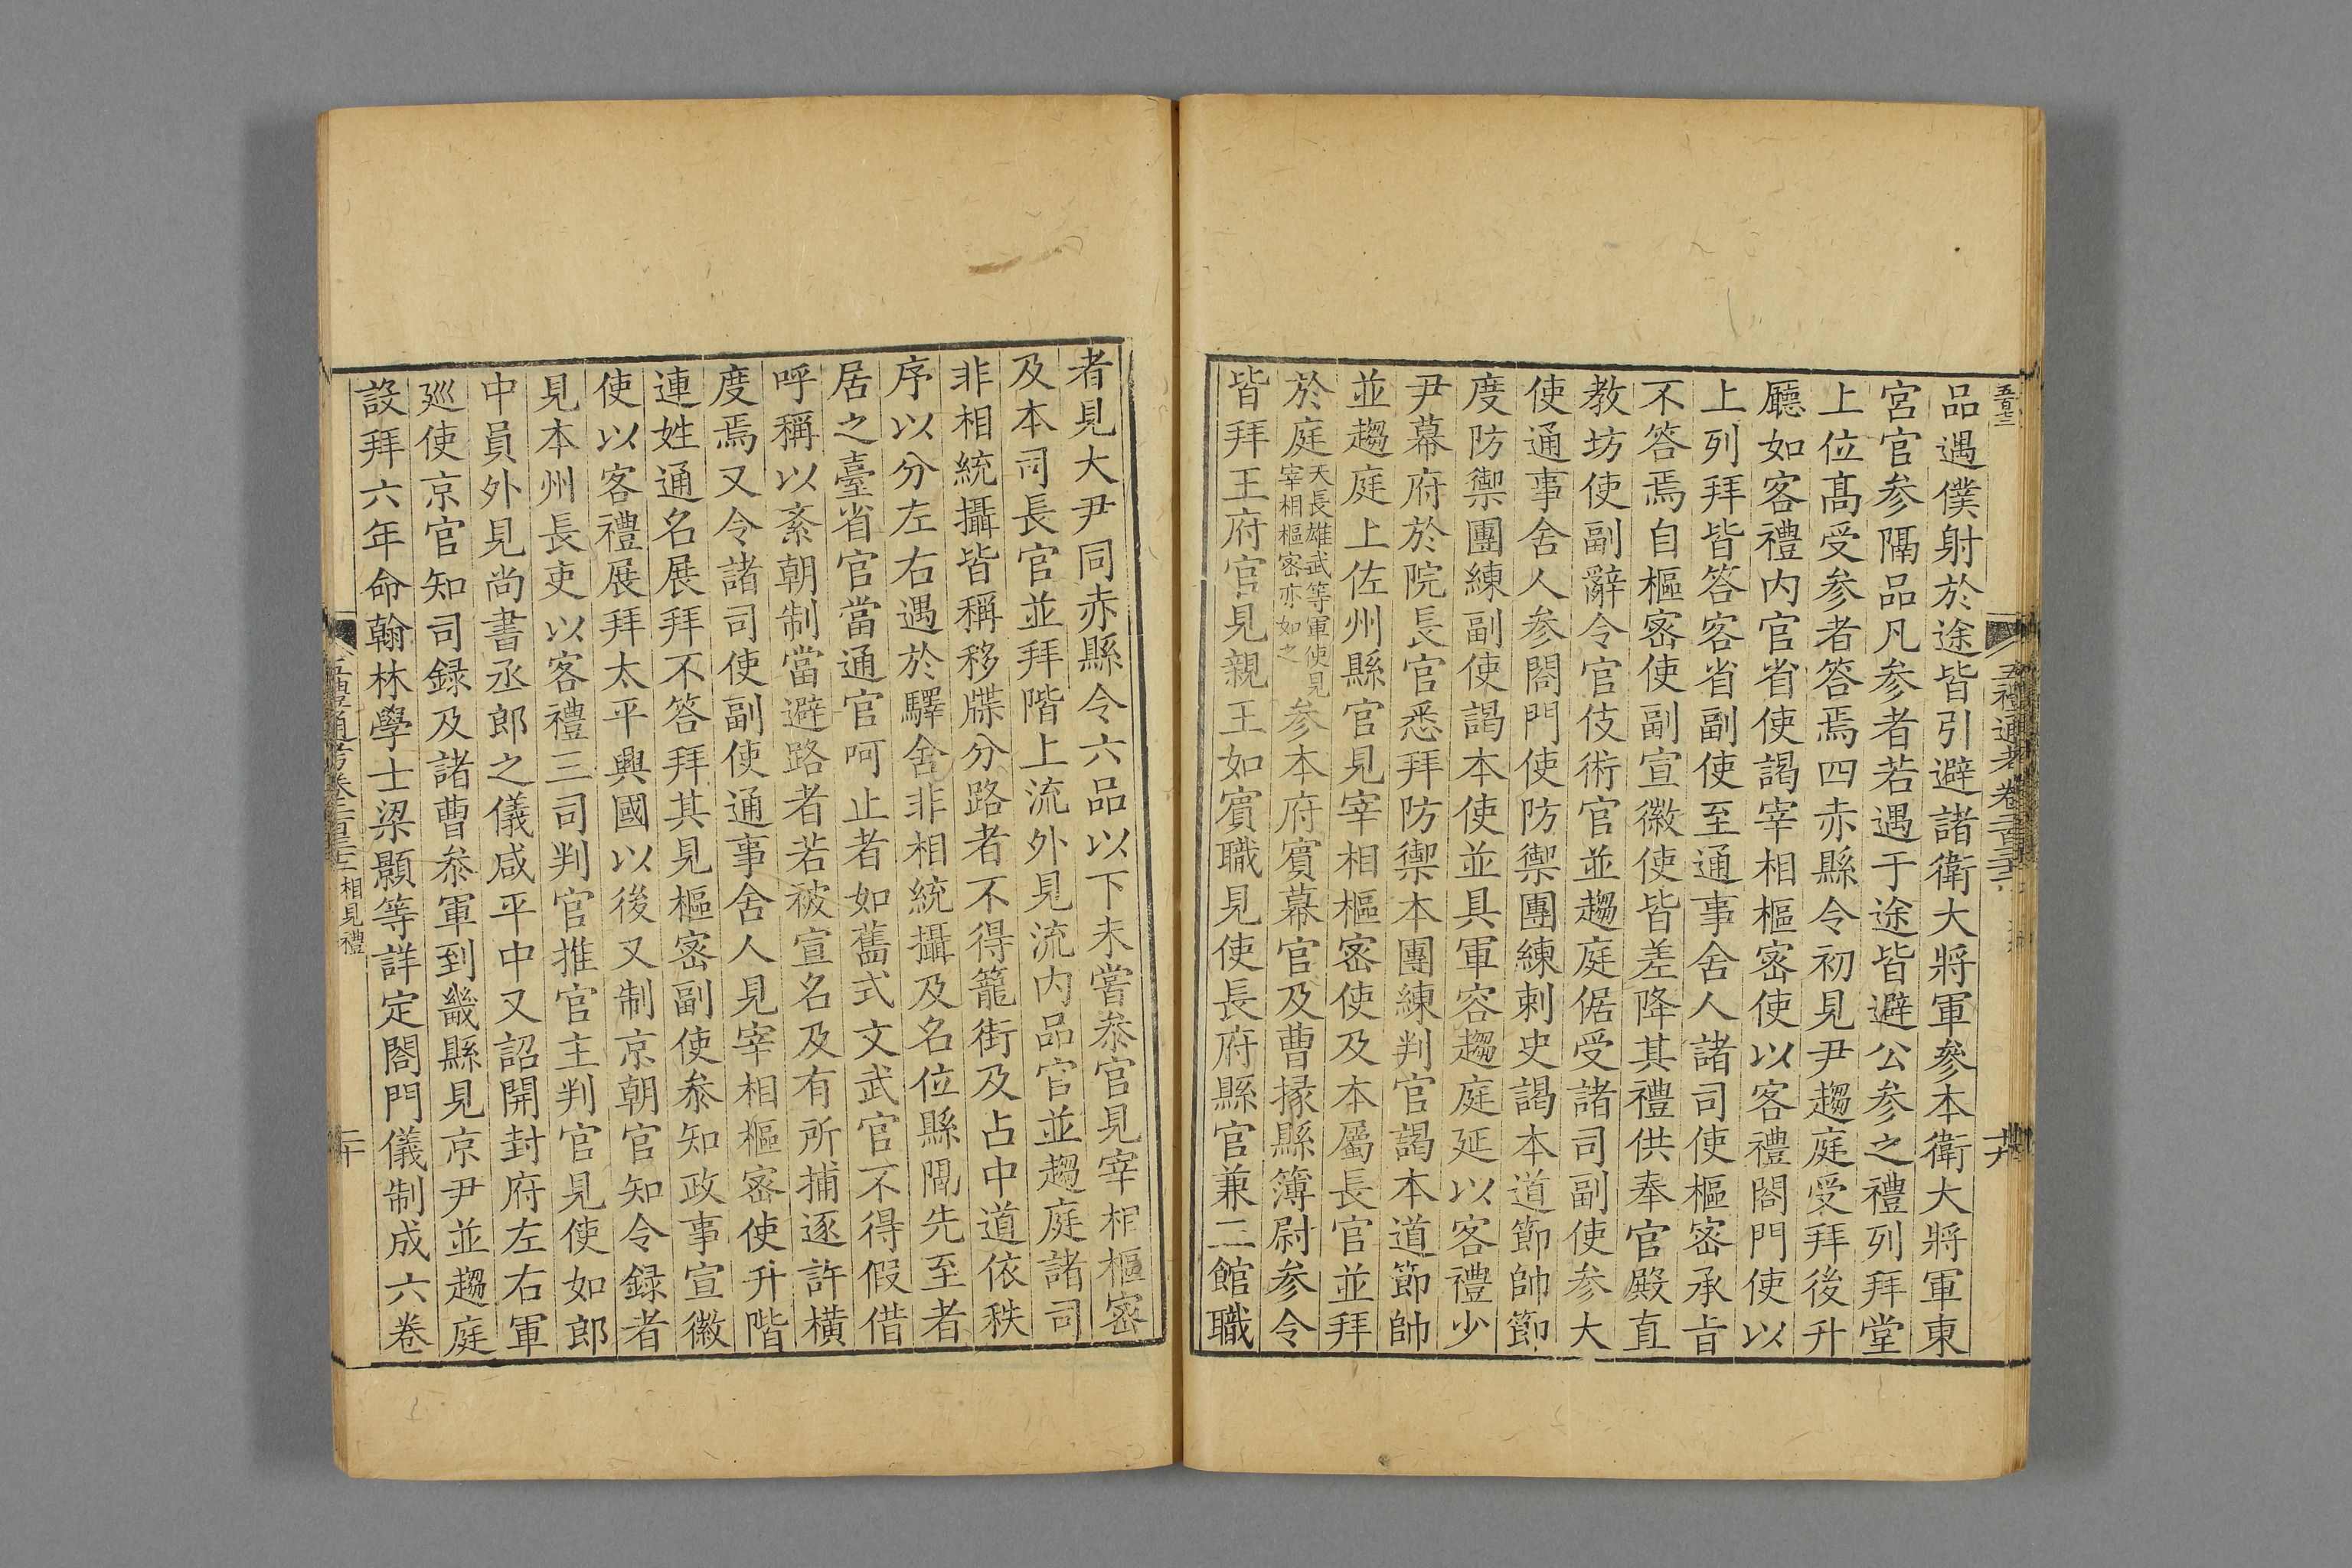 品遇僕射於途皆引避諸衛大將軍參本衛大將軍東
宮官参隔品凡参者若遇于途皆避公参之禮列拜堂
上位髙受参者答焉四赤縣令初見尹趨庭受拜後升
廳如客禮内官省使謁宰相樞宻使以客禮閤門使以
上列拜皆答客省副使至通事舍人諸司使樞宻承㫖
不答焉自樞宻使副宣徽使皆差降其禮供奉官殿直
教坊使副辭令官伎術官並趨庭倨受諸司副使参大
使通事舍人参閤門使防禦團練刺史謁本道節帥節
度防禦團練副使謁本使並具軍容趨庭延以客禮少
尹幕府於院長官悉拜防禦本團練判官謁本道節帥
並趨庭上佐州縣官見宰相樞宻使及本屬長官並拜
於庭天長雄武等軍使見宰相樞宻亦如之参本府賓幕官及曹掾縣簿尉参令
皆拜王府官見親王如賓職見使長府縣官兼二館職
者見大尹同赤縣令六品以下未嘗叅官見宰相樞宻
及本司長官並拜階上流外見流内品官並趨庭諸司
非相統攝皆稱移牒分路者不得籠街及占中道依秩
序以分左右遇於驛舍非相統攝及名位縣隔先至者
居之臺省官當通官呵止者如舊式文武官不得假借
呼稱以紊朝制當避路者若被宣名及有所捕逐許橫
度焉又令諸司使副使通事舍人見宰相樞宻使升階
連姓通名展拜不答拜其見樞宻副使叅知政事宣徽
使以客禮展拜太平興國以後又制京朝官知令録者
見本州長吏以客禮三司判官推官主判官見使如郎
中員外見尚書丞郎之儀咸平中又詔開封府左右軍
廵使京官知司録及諸曹叅軍到畿縣見京尹並趨庭
設拜六年命翰林學士梁顥等詳定閤門儀制成六卷
五禮通考卷
相見禮
二十